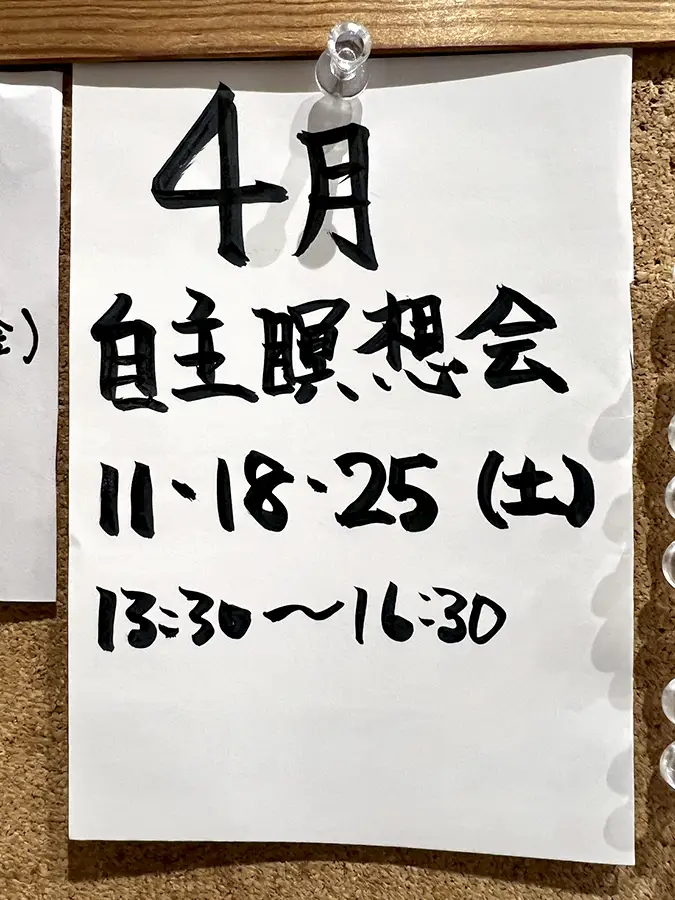 4月
自主瞑想会
11・18・25(土)
13:30～16:30
金)